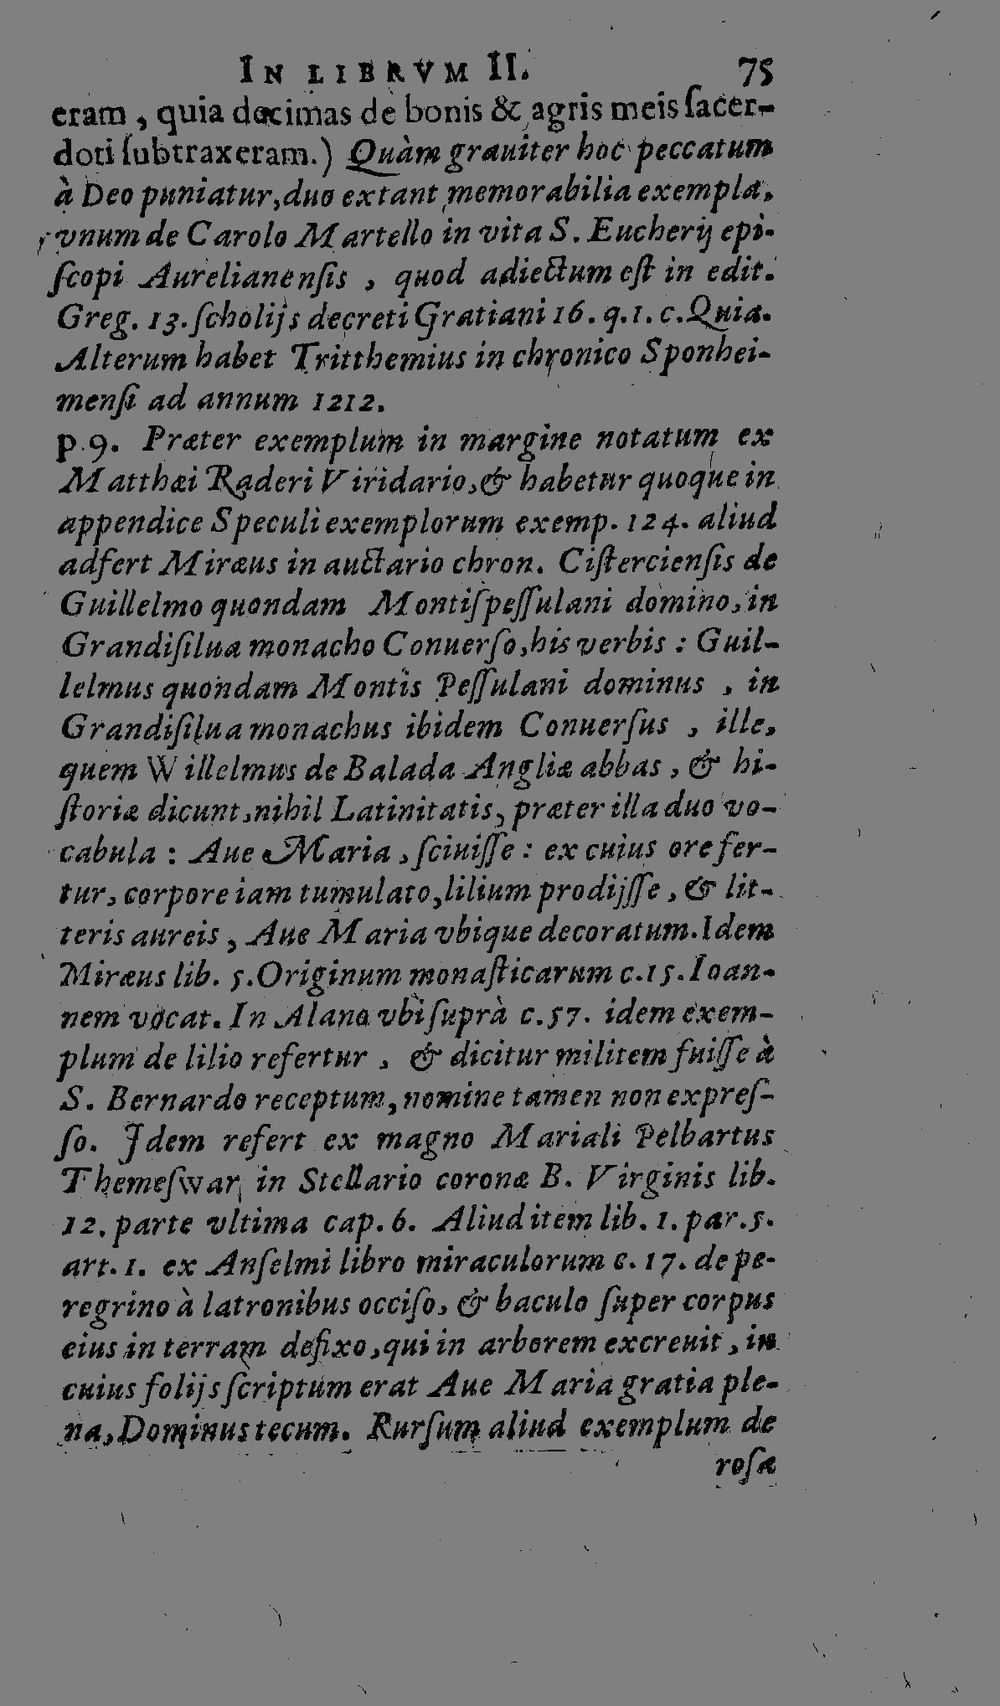 IN LIBRVM II. 75
eram, quia decimas de bonis & agris meis ſacer-
doti ſubtraxeram.) Quàm grauiter hoc peccatum
à Deo puniatur, duo extant memorabilia exempla,
vnum de Carolo Martello in vita S. Eucherij epi-
ſcopi Aurelianenſis , quod adiectum eſt in edit.
Greg. 13. ſcholijs decreti Gratiani 16. q. 1. c. Quia.
Alterum habet Tritthemius in chronico Sponhei-
menſi ad annum 1212.
p. 9. Præter exemplum in margine notatum ex
Matthæi Raderi Viridario, & habetur quoque in
appendice Speculi exemplorum exemp. 124. aliud
adfert Miræus in auctario chron. Ciſtercienſis de
Guillelmo quondam Montiſpeſſulani domino, in
Grandiſilua monacho Conuerſo, his verbis : Guil-
lelmus quondam Montis Peſſulani dominus , in
Grandiſilua monachus ibidem Conuerſus , ille,
quem Willelmus de Balada Angliæ abbas , & hi-
ſtoriæ dicunt, nihil Latinitatis, præter illa duo vo-
cabula : Aue Maria , ſciuiſſe : ex cuius ore fer-
tur, corpore iam tumulato, lilium prodijſſe , & lit-
teris aureis , Aue Maria vbique decoratum. Idem
Miræus lib. 5. Originum monaſticarum c. 15. Ioan-
nem vocat. In Alano vbi ſuprà c. 57. idem exem-
plum de lilio refertur , & dicitur militem fuiſſe à
S. Bernardo receptum, nomine tamen non expreſ-
ſo. Idem refert ex magno Mariali Pelbartus
Themeſwar in Stellario coronæ B. Virginis lib.
12. parte vltima cap. 6. Aliud item lib. 1. par. 5.
art. 1. ex Anſelmi libro miraculorum c. 17. de pe-
regrino à latronibus occiſo, & baculo ſuper corpus
eius in terram defixo, qui in arborem excreuit , in
cuius folijs ſcriptum erat Aue Maria gratia ple-
na, Dominus tecum. Rurſum aliud exemplum de
roſæ